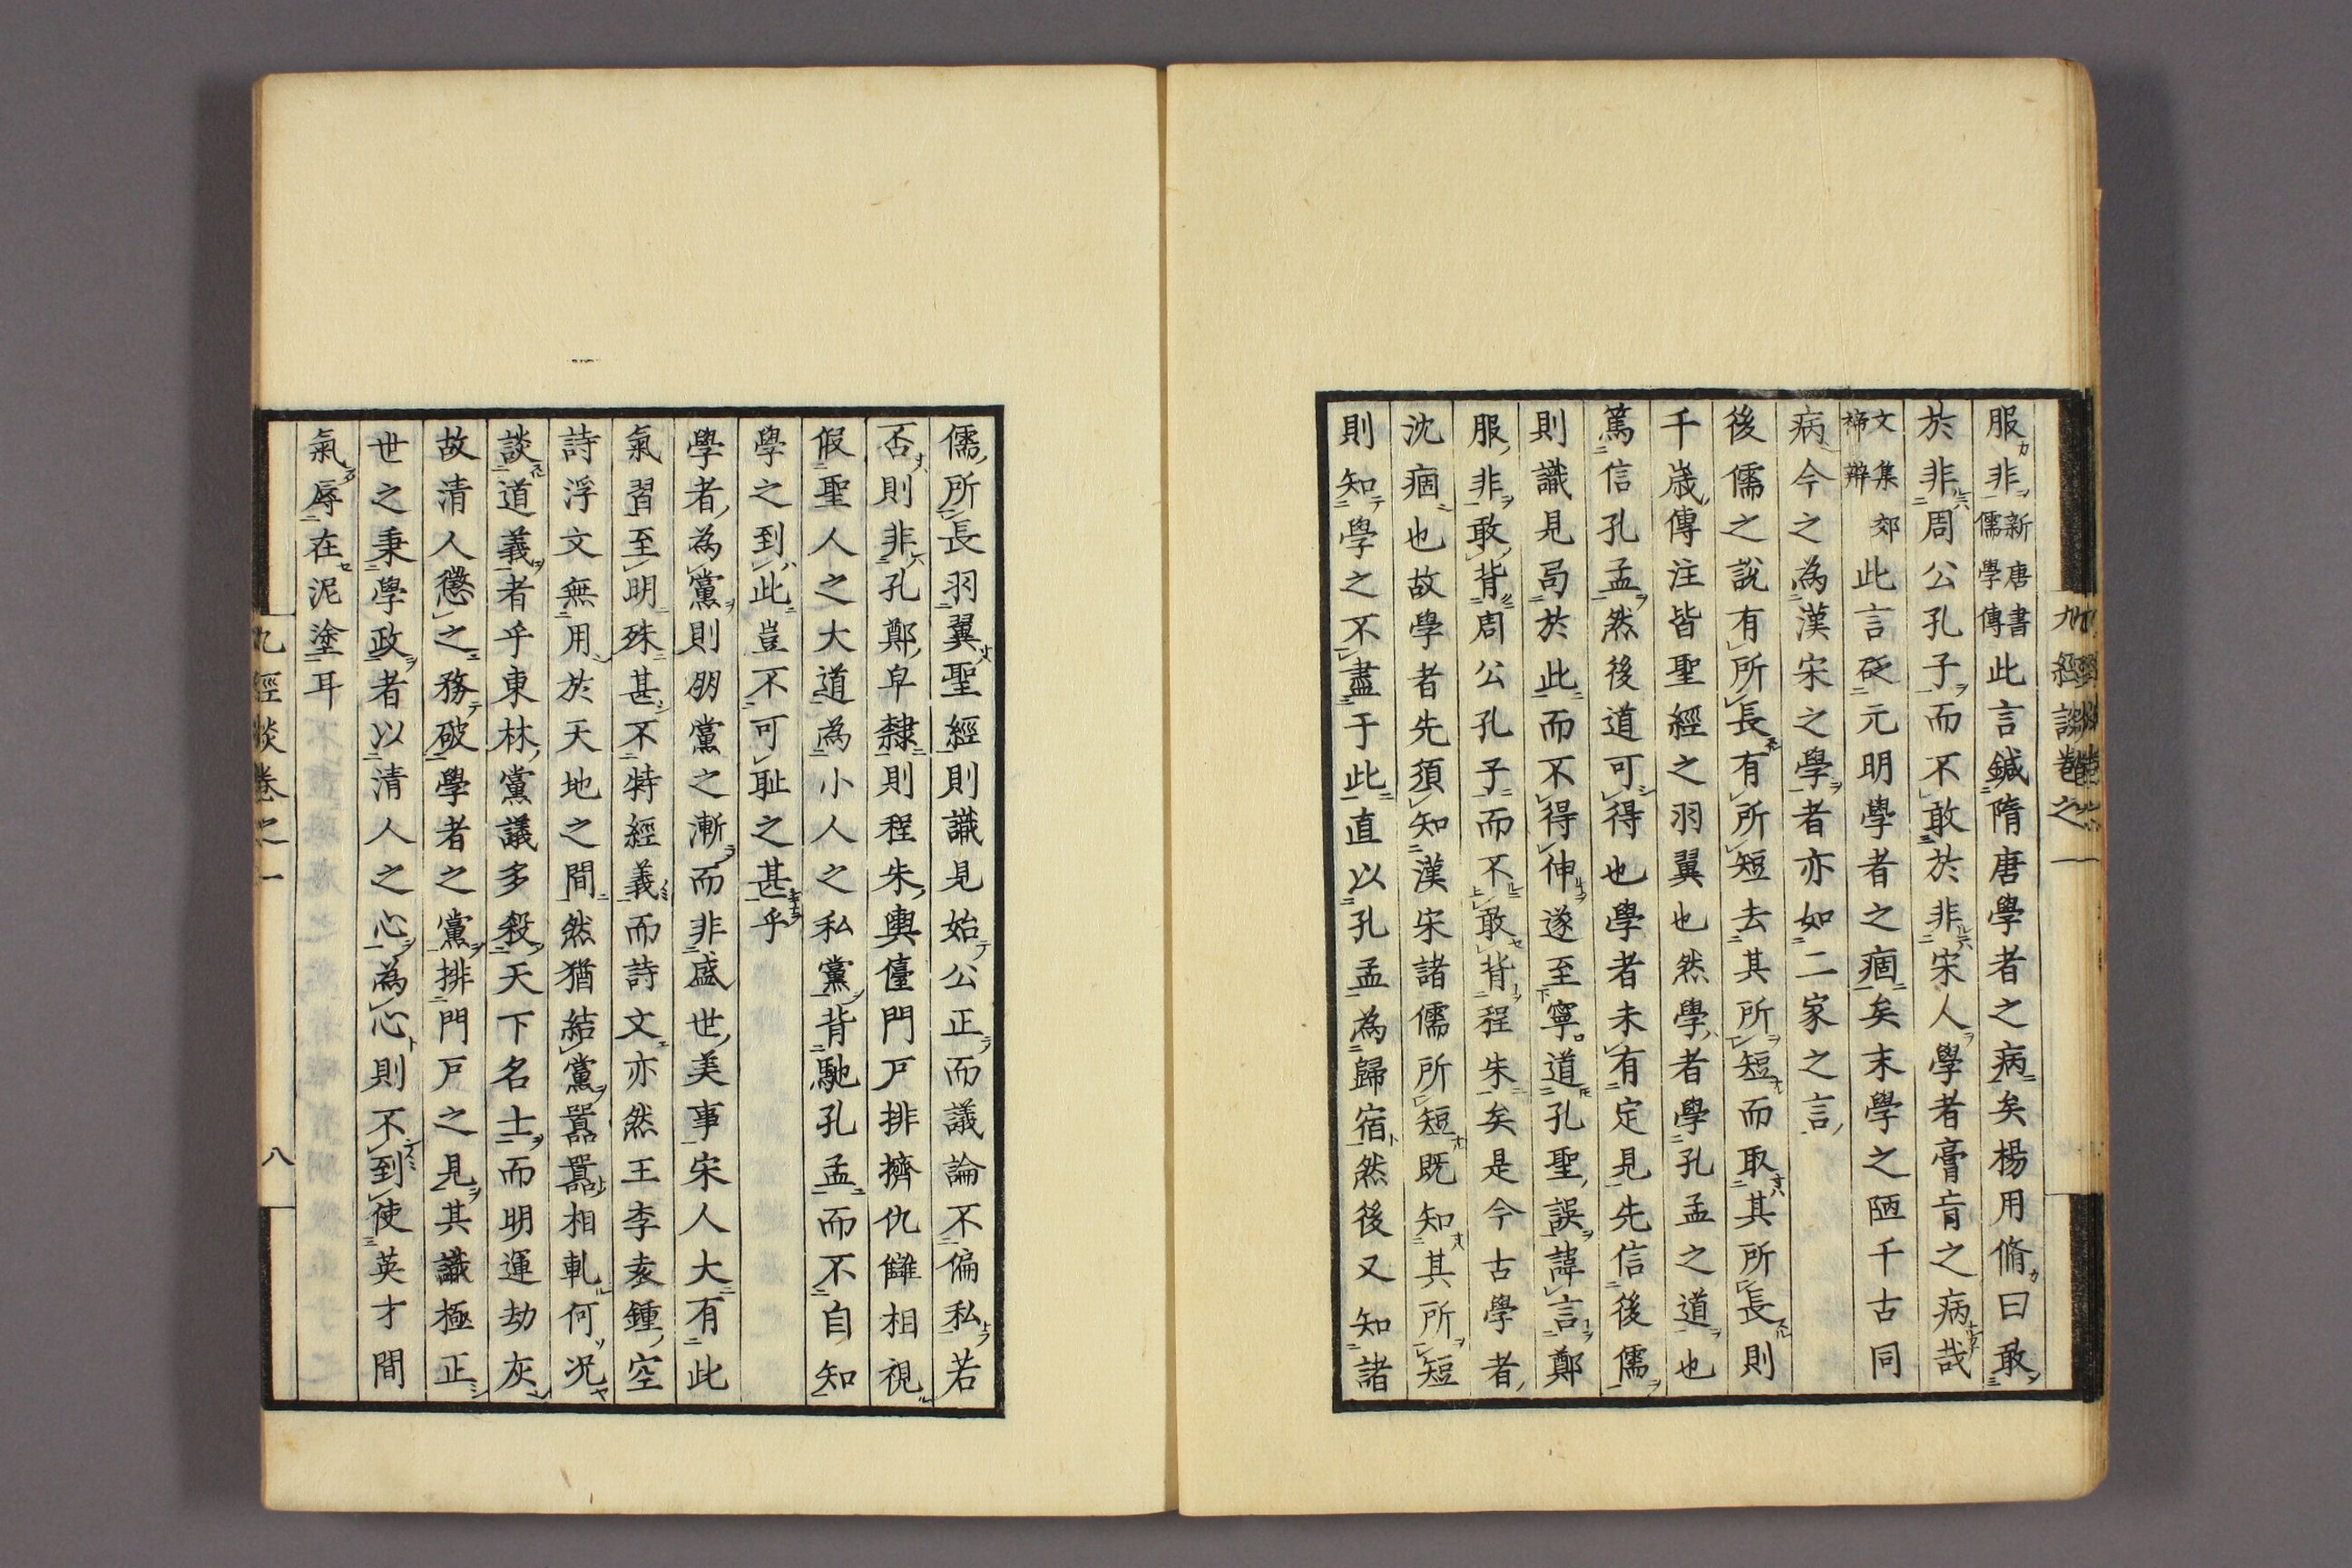 九經談卷之一
服非新唐書儒學傳此言鍼隋唐學者之病矣楊用脩曰敢
於非周公孔子而不敢於非宋人學者膏肓之病哉
文集郊禘辨此言砭元明學者之痼矣末學之陋千古同
病今之為漢宋之學者亦如二家之言
後儒之說有所長有所短去其所短而取其所長則
千歲傳注皆聖經之羽翼也然學者學孔孟之道也
篤信孔孟然後道可得也學者未有定見先信後儒
則識見局於此而不得伸遂至寧道孔聖誤諱言鄭
服非敢背周公孔子而不敢背程朱矣是今古學者
沈痼也故學者先須知漢宋諸儒所短既知其所短
則知學之不盡于此直以孔孟為歸宿然後又知諸
儒所長羽翼聖經則識見始公正而議論不偏私若
否則非孔鄭皁隸則程朱輿儓門戸排擠仇讎相視
假聖人之大道為小人之私黨背馳孔孟而不自知
學之到此豈不可耻之甚乎
學者為黨則朋黨之漸而非盛世美事宋人大有此
氣習至明殊甚不特經義而詩文亦然王李袁鍾空
詩浮文無用於天地之間然猶結黨囂囂相軋何況
談道義者乎東林黨議多殺天下名士而明運劫灰
故清人懲之務破學者之黨排門戸之見其識極正
世之秉學政者以清人之心為心則不到使英才間
氣辱在泥塗耳
九經談卷之一
八